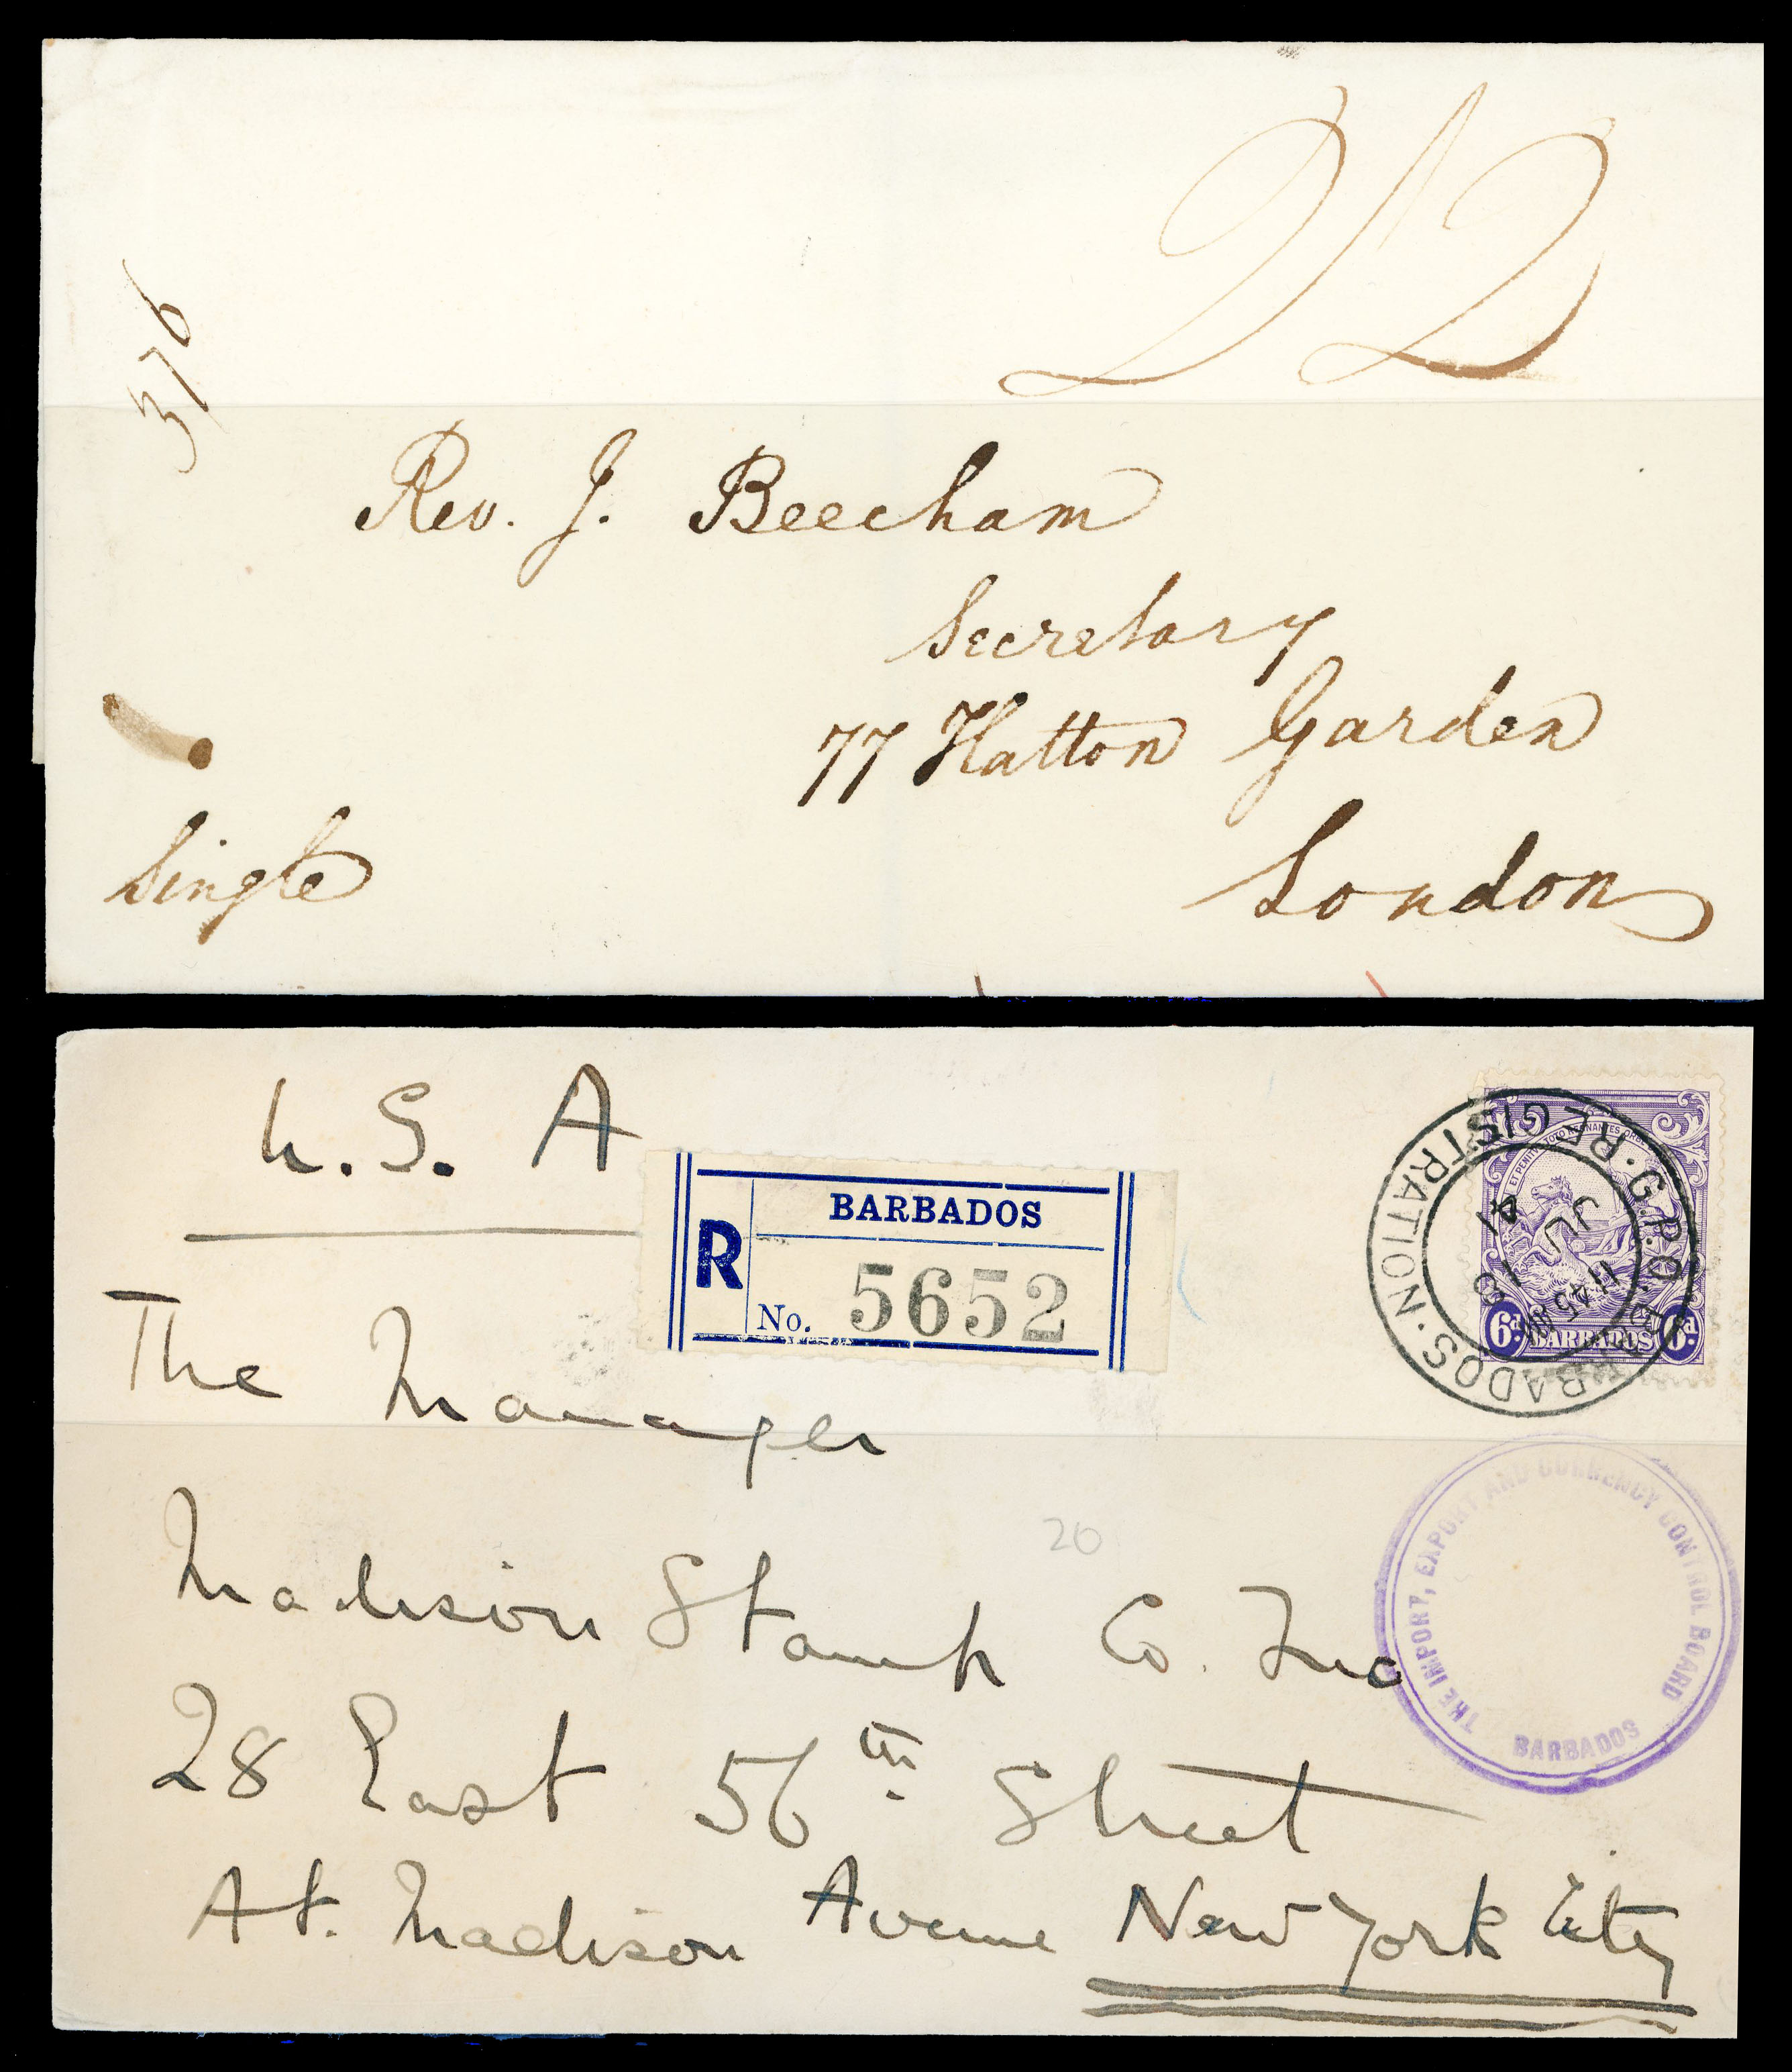 376
Rev. J. Beecham
Secretary
77 Hatton Garden
London
Single
U.S. A
BARBADOS
R
No. 5652
G.P.O. BARBADOS. REGISTRATION.
11 45 AM
13
JU
41
ET PENITUS TOTO REGNANTES ORBE
6d. BARBADOS 6d.
The Manager
Madison Stamp Co. Inc
THE IMPORT, EXPORT AND CURRENCY CONTROL BOARD
BARBADOS
20
28 East 56th Street
At. Madison Avenue New York City